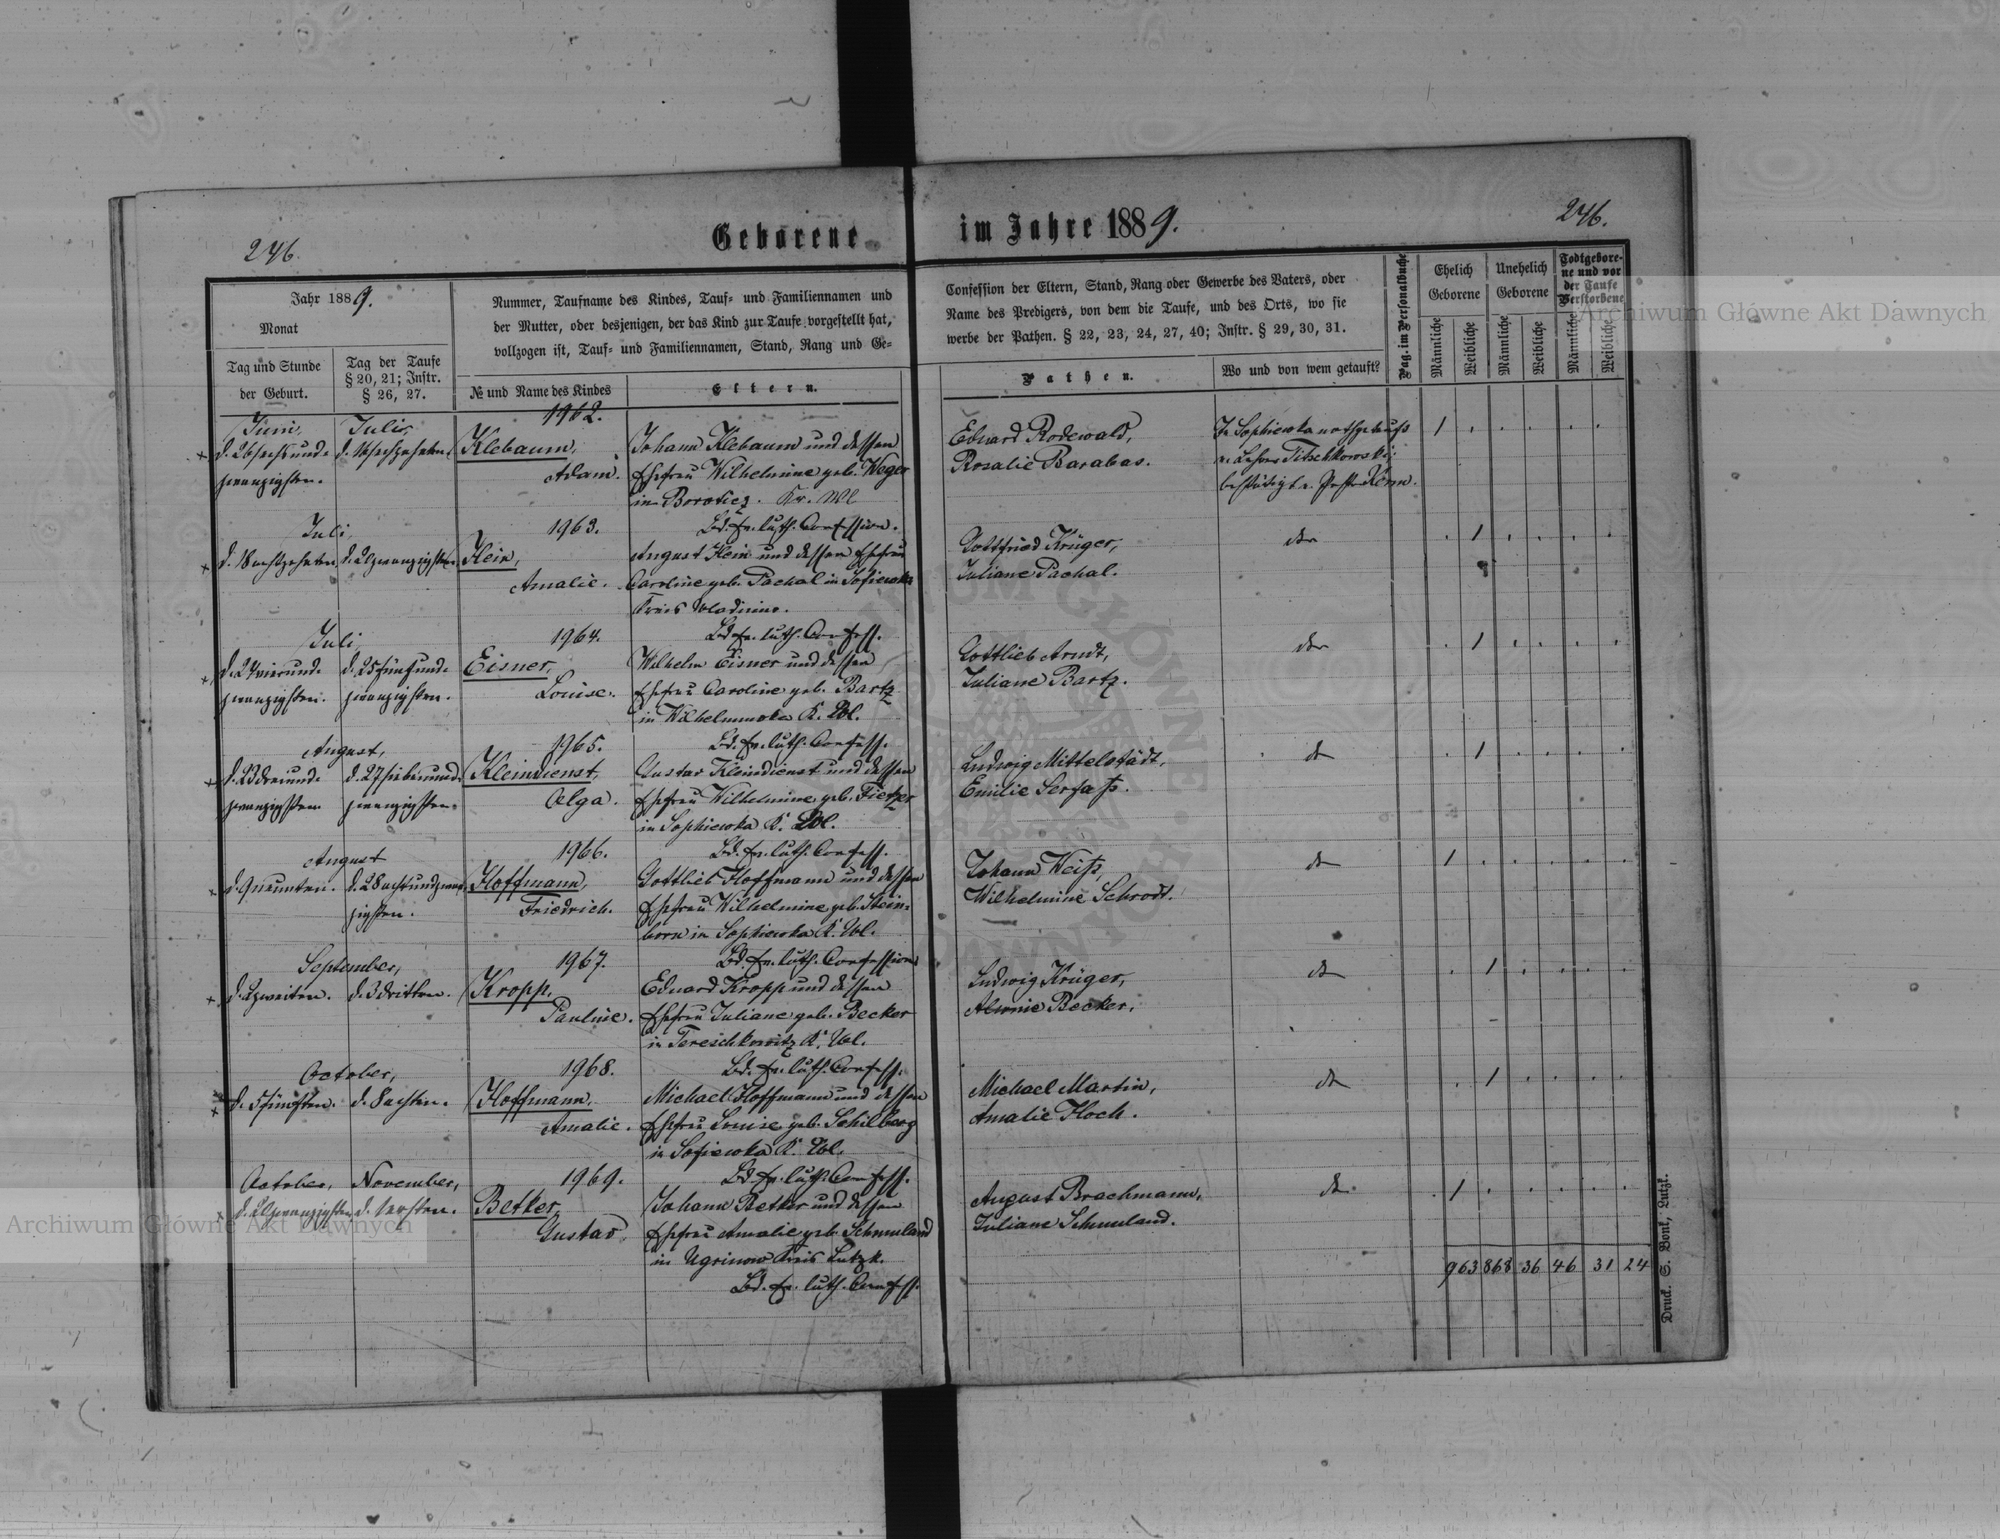 246.
Geborene
im Jahre 1889.
246.
Jahr 1889.
Monat
Tag und Stunde
der Geburt.
Tag der Taufe
§ 20, 21; Instr.
§ 26, 27.
Nummer, Taufname des Kindes, Tauf- und Familiennamen und
der Mutter, oder desjenigen, der das Kind zur Taufe vorgestellt hat,
vollzogen ist, Tauf- und Familiennamen, Stand, Rang und Ge-
№ und Name des Kindes
Eltern.
Confession der Eltern, Stand, Rang oder Gewerbe des Vaters, oder
Name des Predigers, von dem die Taufe, und des Orts, wo sie
werbe der Pathen. § 22, 23, 24, 27, 40; Instr. § 29, 30, 31.
Pathen.
Wo und von wem getauft?
Pag. im Personalbuche
Ehelich
Geborene
Unehelich
Geborene
Todtgebore-
ne und vor
der Taufe
Verstorbene
Männliche
Weibliche
Männliche
Weibliche
Männliche
Weibliche
Juni,
d. 26 sechsund-
zwanzigsten.
Juli,
d. 16 sechzehnten.
1962.
Klebaum,
Adam.
Johann Klebaum und dessen
Ehefrau Wilhelmine geb. Weger
in Boratiez. Kr. Wl.
Bd. ev. luth. Confession.
Eduard Rodewald,
Rosalie Barabas.
In Sophiewka nothgetauft
v. Lehrer Titschkowski;
bestätigt v. Pastor Kern.
1
Juli,
d. 18 achtzehnten.
d. 20 zwanzigsten.
1963.
Hein,
Amalie.
August Hein und dessen Ehefrau
Caroline geb. Pachal in Sofiewka
Kreis Wladimir.
Bd. ev. luth. Confess.
Gottfried Krüger,
Juliane Pachal.
do
1
Juli,
d. 24 vierund-
zwanzigsten.
d. 25 fünfund-
zwanzigsten.
1964.
Eisner,
Louise.
Wilhelm Eisner und dessen
Ehefrau Caroline geb. Bartz
in Wilhelmuwka K. Wl.
Bd. ev. luth. Confess.
Gottlieb Arndt,
Juliane Bartz.
do
1
August,
d. 23 dreiund-
zwanzigsten
d. 27 siebenund-
zwanzigsten.
1965.
Kleindienst,
Olga.
Gustav Kleindienst und dessen
Ehefrau Wilhelmine geb. Fietzer
in Sophiewka K. Wl.
Bd. ev. luth. Confess.
Ludwig Mittelstädt,
Emilie Serfaß.
do
1
August
d. 9 neunten.
d. 28 achtundzwan-
zigsten.
1966.
Hoffmann,
Friedrich.
Gottlieb Hoffmann und dessen
Ehefrau Wilhelmine geb. Stein-
born in Sophiewka K. Wl.
Bd. ev. luth. Confession.
Johann Weiß,
Wilhelmine Schrodt.
do
1
September,
d. 2 zweiten.
d. 3 dritten.
1967.
Kropp,
Pauline.
Eduard Kropp und dessen
Ehefrau Juliane geb. Becker
in Tereschkowitz K. Wl.
Bd. ev. luth. Confess.
Ludwig Krüger,
Alwine Becker.
do
1
October,
d. 5 fünften.
d. 8 achten.
1968.
Hoffmann,
Amalie.
Michael Hoffmann und dessen
Ehefrau Louise geb. Schilberg
in Sofiewka K. Wl.
Bd. ev. luth. Confess.
Michael Martin,
Amalie Hoch.
do
1
October,
d. 20 zwanzigsten
November,
d. 1 ersten.
1969.
Betker,
Gustav.
Johann Betker und dessen
Ehefrau Amalie geb. Schmuland
in Ugrinow Kreis Lutzk.
Bd. ev. luth. Confess.
August Brachmann,
Juliane Schmuland.
do
1
963 868 36 46 31 24
Druck. S. Bonk, Lutzk.
Archiwum Główne Akt Dawnych
Archiwum Główne Akt Dawnych